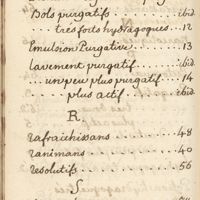 Bols purgatifs ........ ibid
tres forts hydragogues .. 12
Emulsion Purgative ..... 13
Lavement purgatif ..... ibid
... un peu plus purgatif .. 14
plus actif .. ibid
R.
Rafraichissans ........ 48
Ranimans ........ 40
Resolutifs ........ 56
S